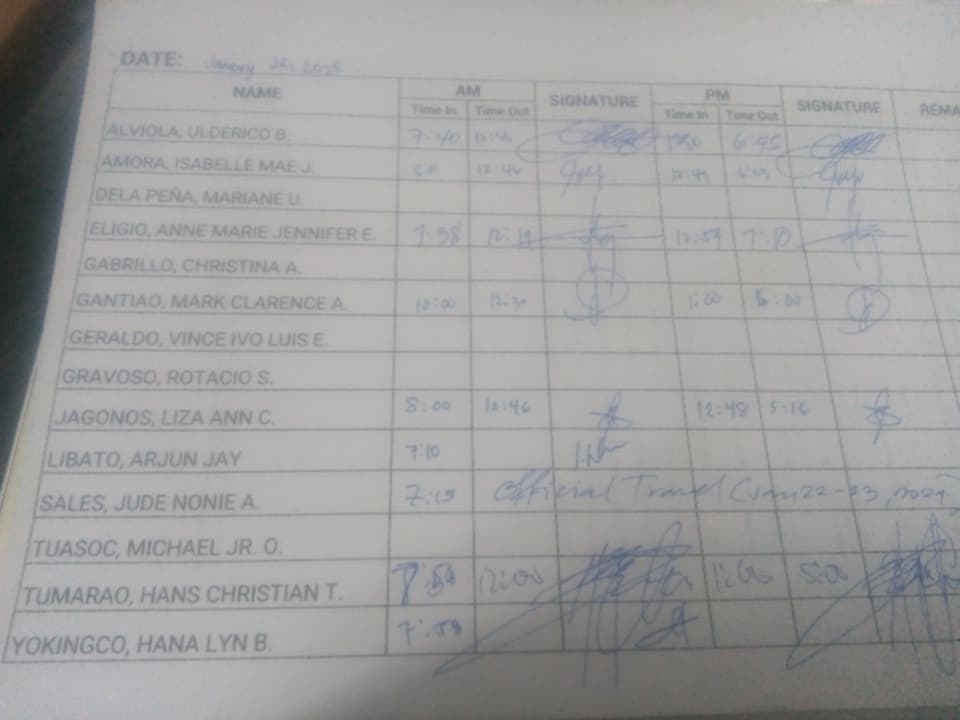 DATE:
NAME AM SIGNATURE PM SIGNATURE REMA
Time In Time Out Time In Time Out
ALVIOLA, ULDERICO B. 7:40 6:45
AMORA, ISABELLE MAE J. 12:46 12:49
DELA PEÑA, MARIANE U.
ELIGIO, ANNE MARIE JENNIFER E. 7:38 7:10
GABRILLO, CHRISTINA A.
GANTIAO, MARK CLARENCE A. 12:00 12:30 1:00 6:00
GERALDO, VINCE IVO LUIS E.
GRAVOSO, ROTACIO S.
JAGONOS, LIZA ANN C. 8:00 12:46 12:48 5:16
LIBATO, ARJUN JAY 7:10
SALES, JUDE NONIE A. Official Travel
TUASOC, MICHAEL JR. O.
TUMARAO, HANS CHRISTIAN T. 12:00 5:00
YOKINGCO, HANA LYN B. 7:59